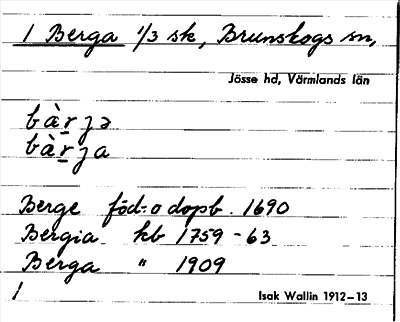 1 Berga 1/3 sk, Brunskogs sn,
Jösse hd, Värmlands län
bàr̲jə
bàr̲ja
Berge föd:o dopb. 1690
Bergia kb 1759-63
Berga " 1909
1
Isak Wallin 1912-13